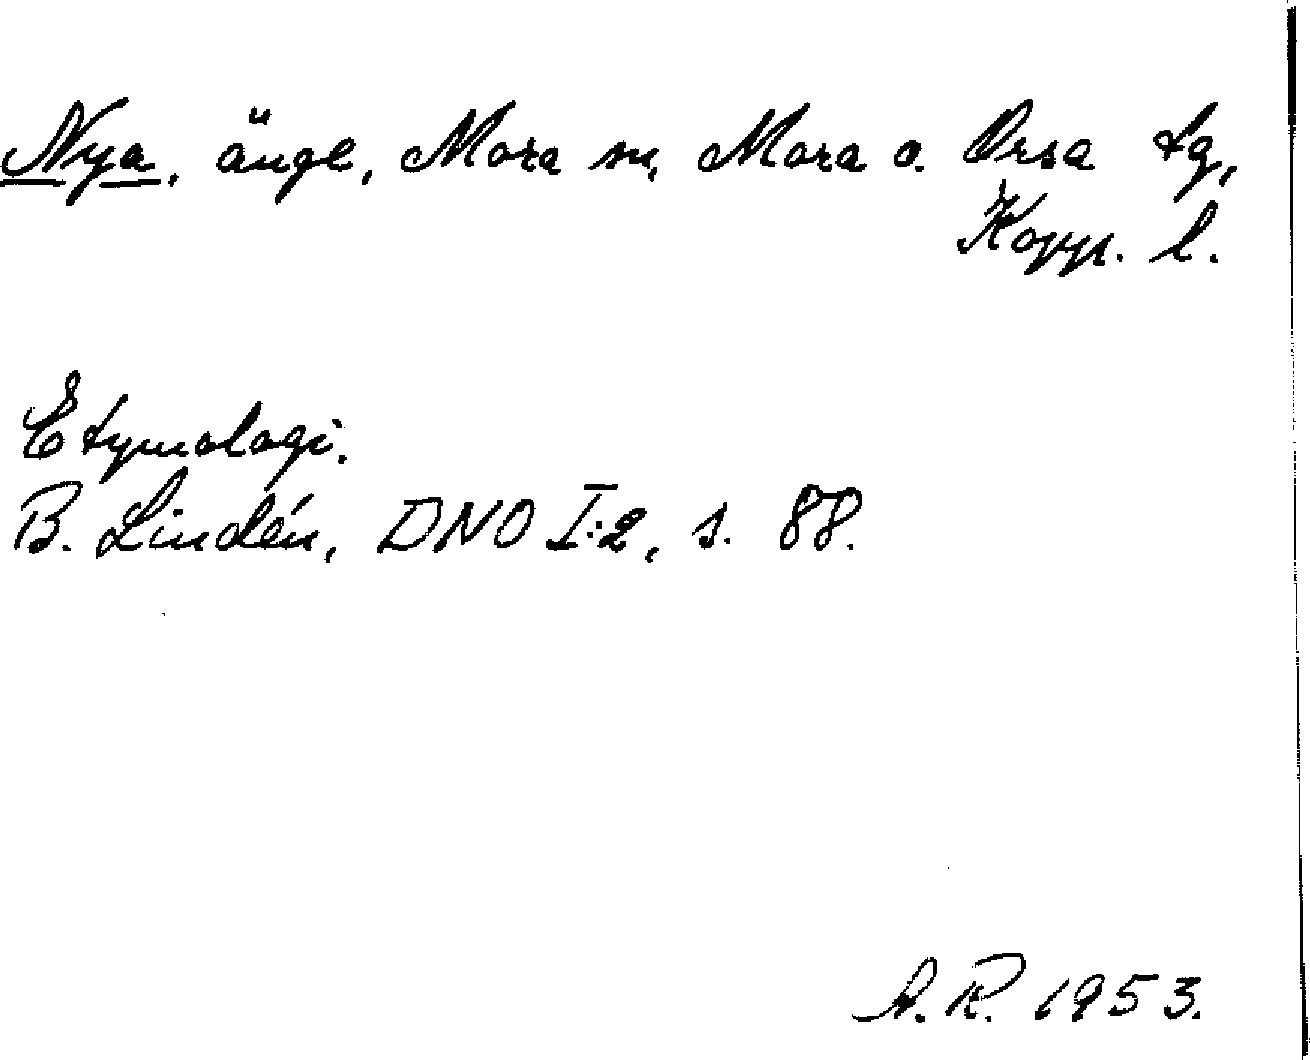 Nya, ängl, Mora sn, Mora o. Orsa tg,
Kopp. l.
Etymologi.
B. Lindén, DNO I:2, s. 88.
A. R. 1953.